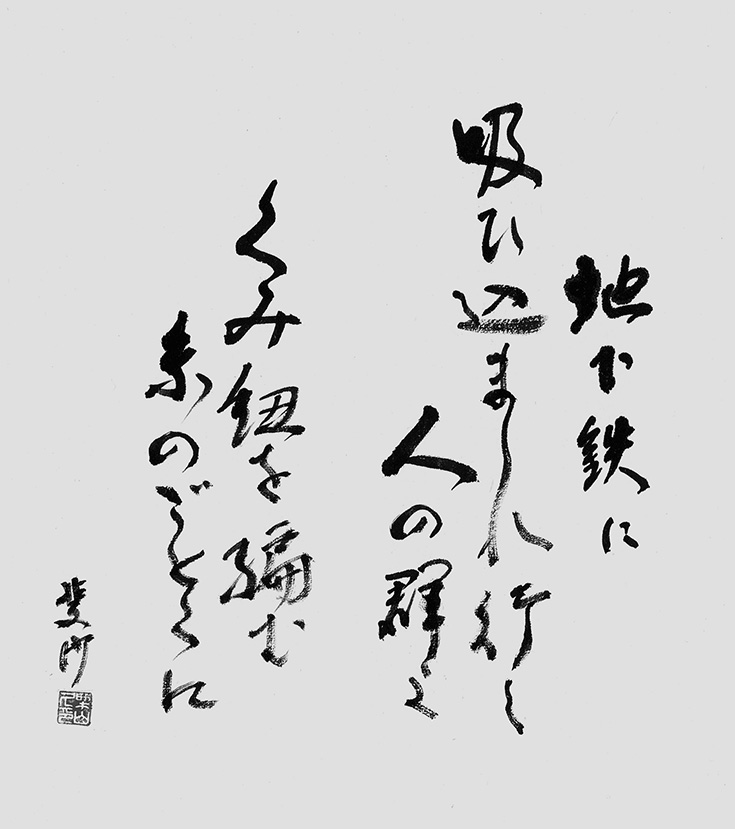 地下鉄に
吸ひ込まれ行く
人の群
くみ紐を編む
糸のごとくに